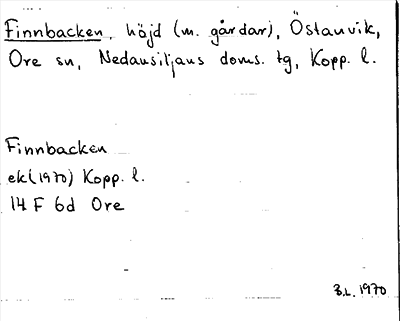 Finnbacken, höjd (m. gårdar), Östanvik,
Ore sn, Nedansiljans doms. tg, Kopp. l.
Finnbacken
ek (1970) Kopp. l.
14 F 6d Ore
B.L. 1970